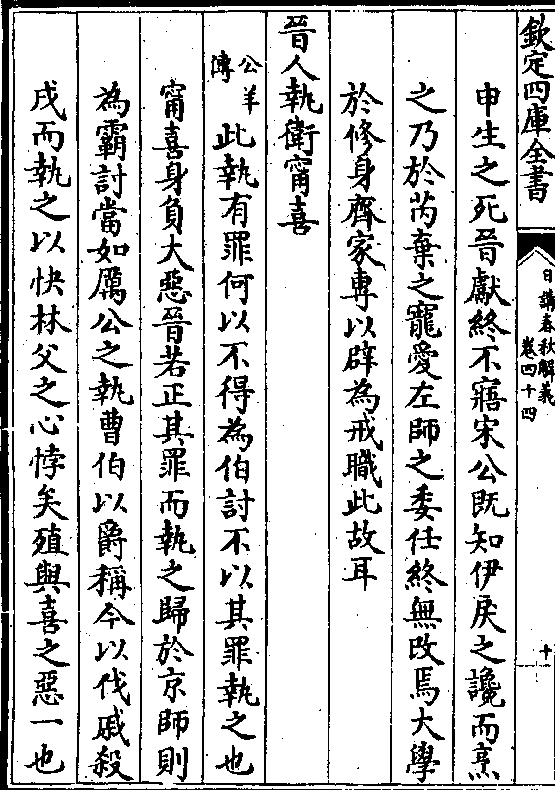 欽定四庫全書
日講春秋解義
卷四十四
十
申生之死晉獻終不寤宋公既知伊戾之讒而烹
之乃於芮棄之寵愛左師之委任終無改焉大學
於修身齊家專以辟為戒職此故耳
晉人執衛甯喜
公羊
傳
此執有罪何以不得為伯討不以其罪執之也
甯喜身負大惡晉若正其罪而執之歸於京師則
為霸討當如厲公之執曹伯以爵稱今以伐戚殺
戍而執之以快林父之心悖矣殖與喜之惡一也